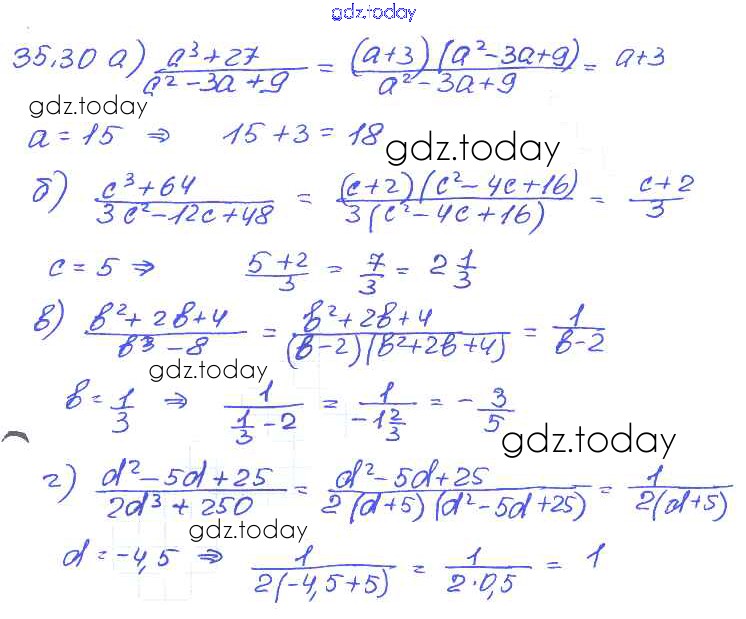 gdz.today
35.30 а) (a³+27)/(a²-3a+9) = ((a+3)(a²-3a+9))/(a²-3a+9) = a+3
gdz.today
a = 15 ⇒ 15+3 = 18
gdz.today
б) (c³+64)/(3c²-12c+48) = ((c+2)(c²-4c+16))/(3(c²-4c+16)) = (c+2)/3
c = 5 ⇒ (5+2)/3 = 7/3 = 2 1/3
в) (b²+2b+4)/(b³-8) = (b²+2b+4)/((b-2)(b²+2b+4)) = 1/(b-2)
gdz.today
b = 1/3 ⇒ 1/(1/3 - 2) = 1/(-1 2/3) = -3/5
gdz.today
г) (d²-5d+25)/(2d³+250) = (d²-5d+25)/(2(d+5)(d²-5d+25)) = 1/(2(d+5))
gdz.today
d = -4,5 ⇒ 1/(2(-4,5+5)) = 1/(2·0,5) = 1